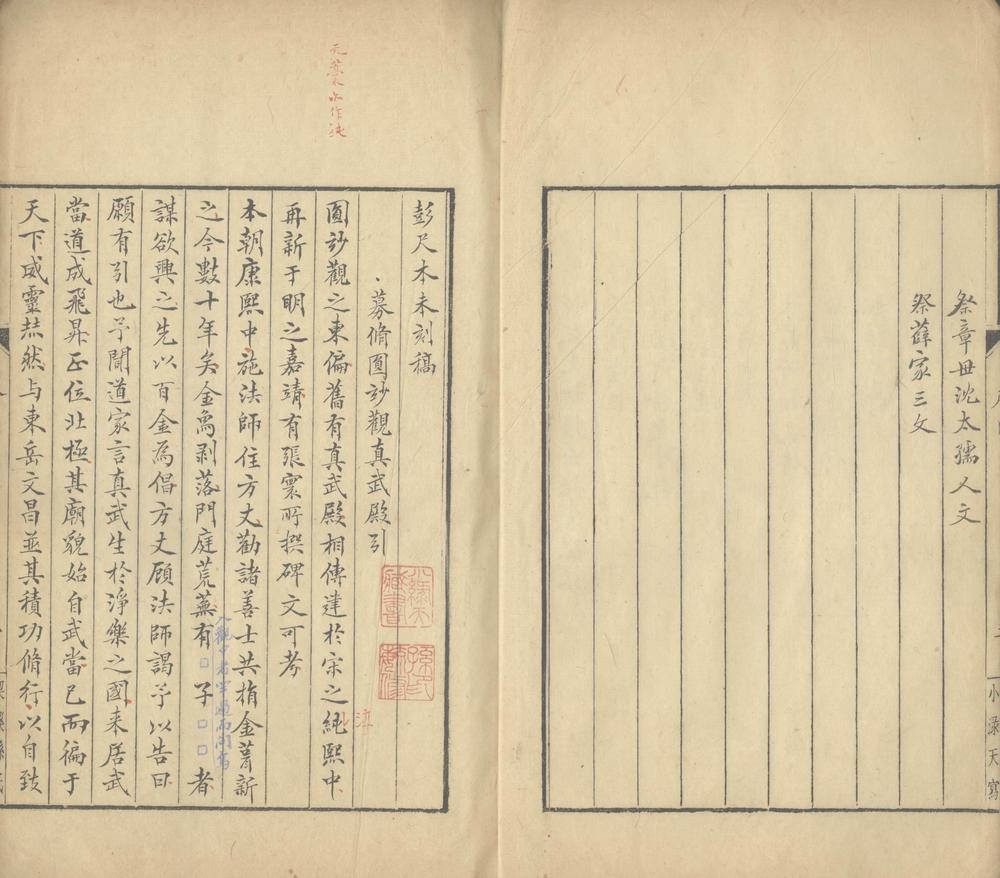 祭章母沈太孺人文
祭薛家三文
小渌天寫
彭尺木未刻稿
募脩圓玅觀真武殿引
圓玅觀之東偏舊有真武殿相傳建於宋之純熙中
再新于明之嘉靖有張寰所撰碑文可考
本朝康熙中施法師住方丈勸諸善士共捐金葺新
之今數十年矣金鳥剥落門庭荒蕪有□子□□者
謀欲興之先以百金為倡方丈顧法師謁予以告曰
願有引也予聞道家言真武生於淨樂之國来居武
當道成飛昇正位北極其廟貌始自武當已而徧于
天下威靈赫然与東岳文昌並其積功脩行以自致
元藁亦作純
淳
入觀中者
小綠天
藏書
孫氏